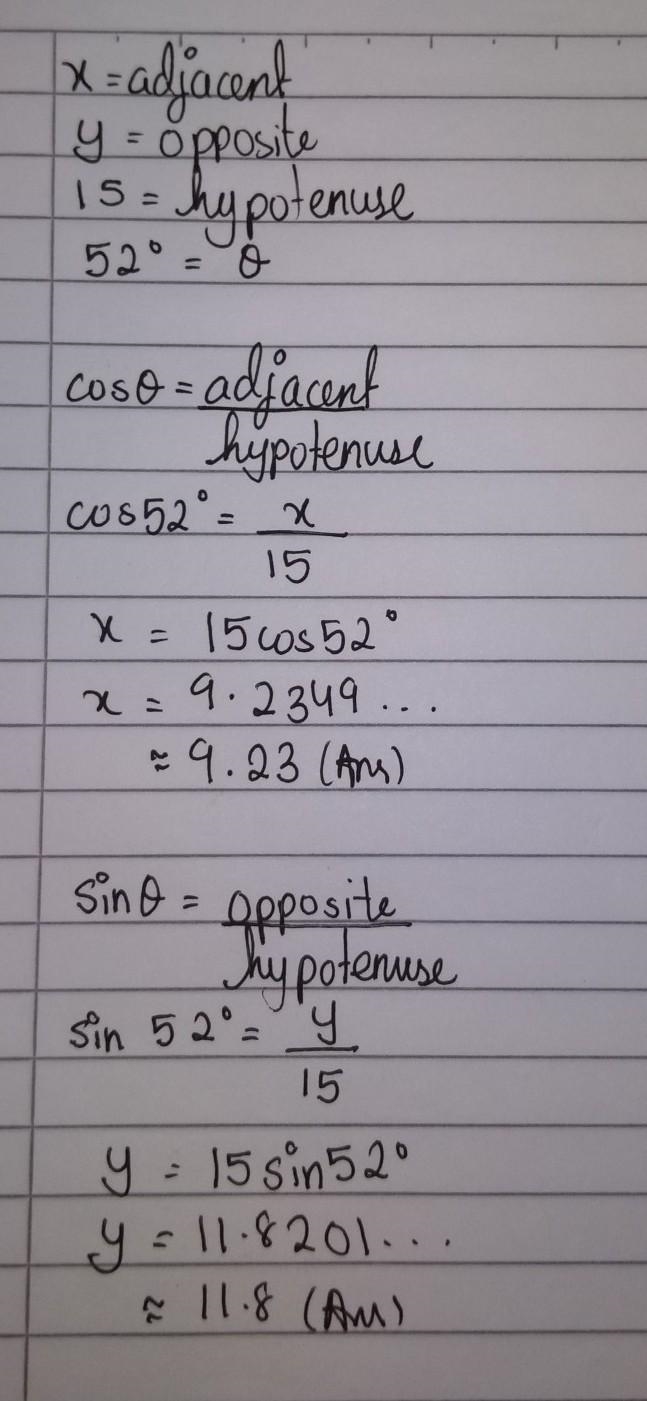 x = adjacent
y = opposite
15 = hypotenuse
52° = θ
cosθ = adjacent
hypotenuse
cos52° = x
15
x = 15cos52°
x = 9.2349...
≈ 9.23 (Ans)
sinθ = opposite
hypotenuse
sin 52° = y
15
y = 15sin52°
y = 11.8201...
≈ 11.8 (Ans)